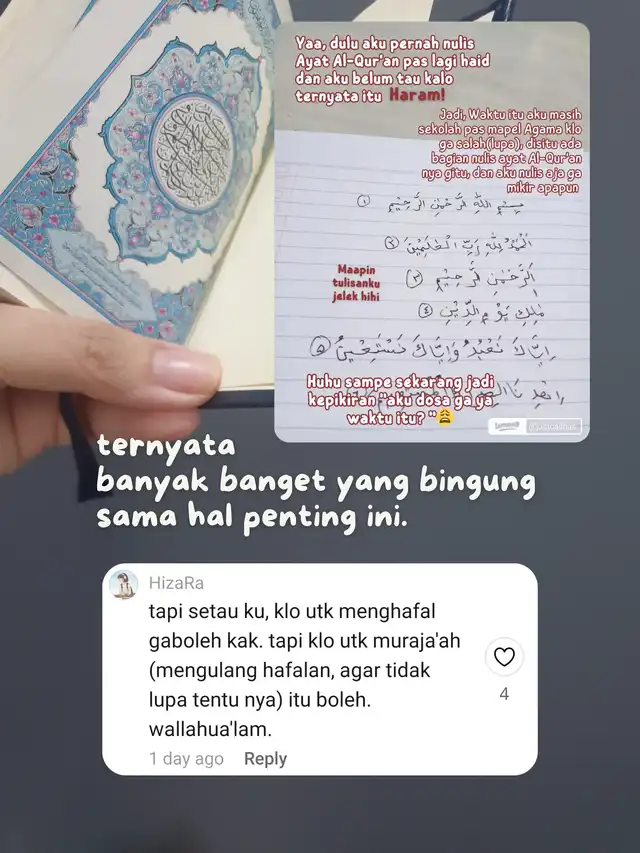 Yaa, dulu aku pernah nulis
Ayat Al-Qur'an pas lagi haid
dan aku belum tau kalo
ternyata itu Haram!
Jadi, Waktu itu aku masih
sekolah pas mapel Agama klo
ga salah(lupa), disitu ada
bagian nulis ayat Al-Qur'an
nya gitu, dan aku nulis aja ga
mikir apapun
بِسْمِ اللهِ الرَّحْمٰنِ الرَّحِيْمِ ①
الْحَمْدُ لِلّٰهِ رَبِّ الْعٰلَمِيْنَ ②
الرَّحْمٰنِ الرَّحِيْمِ ③
Maapin
tulisanku
jelek hihi
مٰلِكِ يَوْمِ الدِّيْنِ ④
اِيَّاكَ نَعْبُدُ وَاِيَّاكَ نَسْتَعِيْنُ ⑤
Huhu sampe sekarang jadi
kepikiran "aku dosa ga ya
waktu itu? "😩
Lemon8
ternyata
banyak banget yang bingung
sama hal penting ini.
HizaRa
tapi setau ku, klo utk menghafal
gaboleh kak. tapi klo utk muraja'ah
(mengulang hafalan, agar tidak
lupa tentu nya) itu boleh.
wallahua'lam.
4
1 day ago Reply